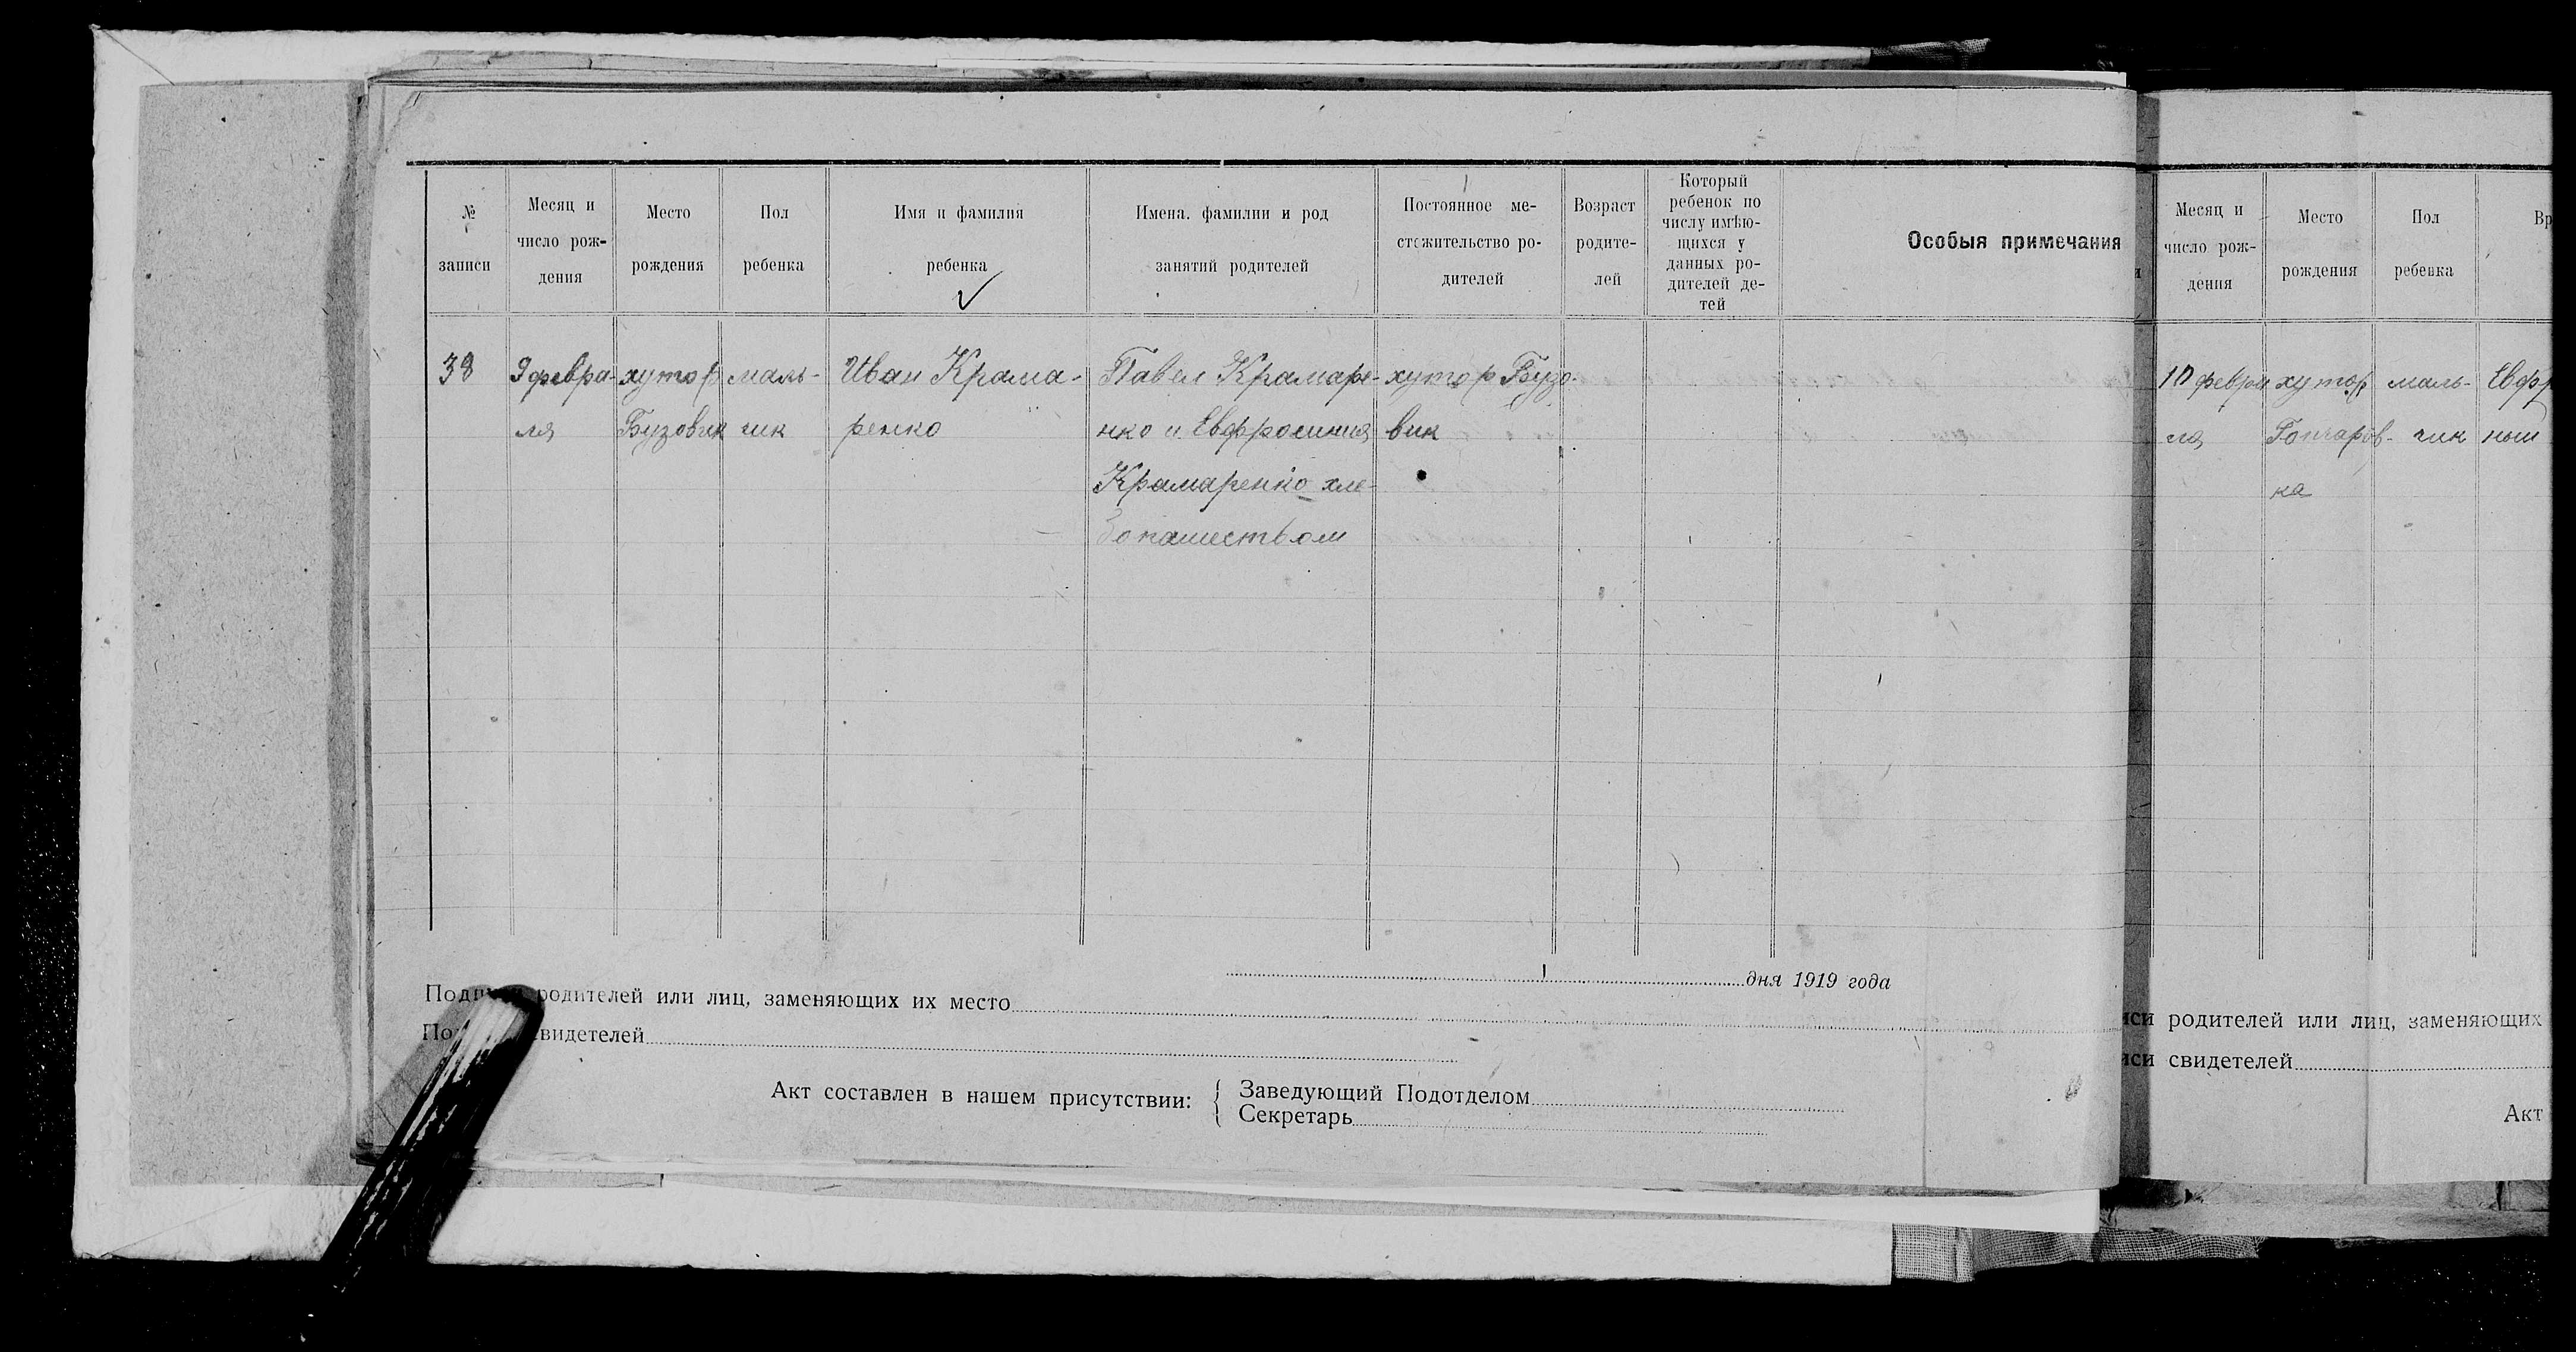 № записи
Месяц и число рож-дения
Место рождения
Пол ребенка
Имя и фамилия ребенка
Имена, фамилии и род занятий родителей
Постоянное ме-стожительство ро-дителей
Возраст родите-лей
Который ребенок по числу имѣю-щихся у данных ро-дителей де-тей
Особыя примечания
38
9 февра-
ля
хутор
Бузовик
маль-
чик
Иван Крама-
ренко
Павел Крамаре-
нко и Евфросиния
Крамаренко хле-
бопашеством
хутор Бузо-
вик
дня 1919 года
родителей или лиц, заменяющих их место
свидетелей
Акт составлен в нашем присутствии:
Заведующий Подотделом
Секретарь
Месяц и число рож-дения
Место рождения
Пол ребенка
10 февра
ля
хутор
Гончаров-
ка
маль-
чик
родителей или лиц, заменяющих
свидетелей
Акт